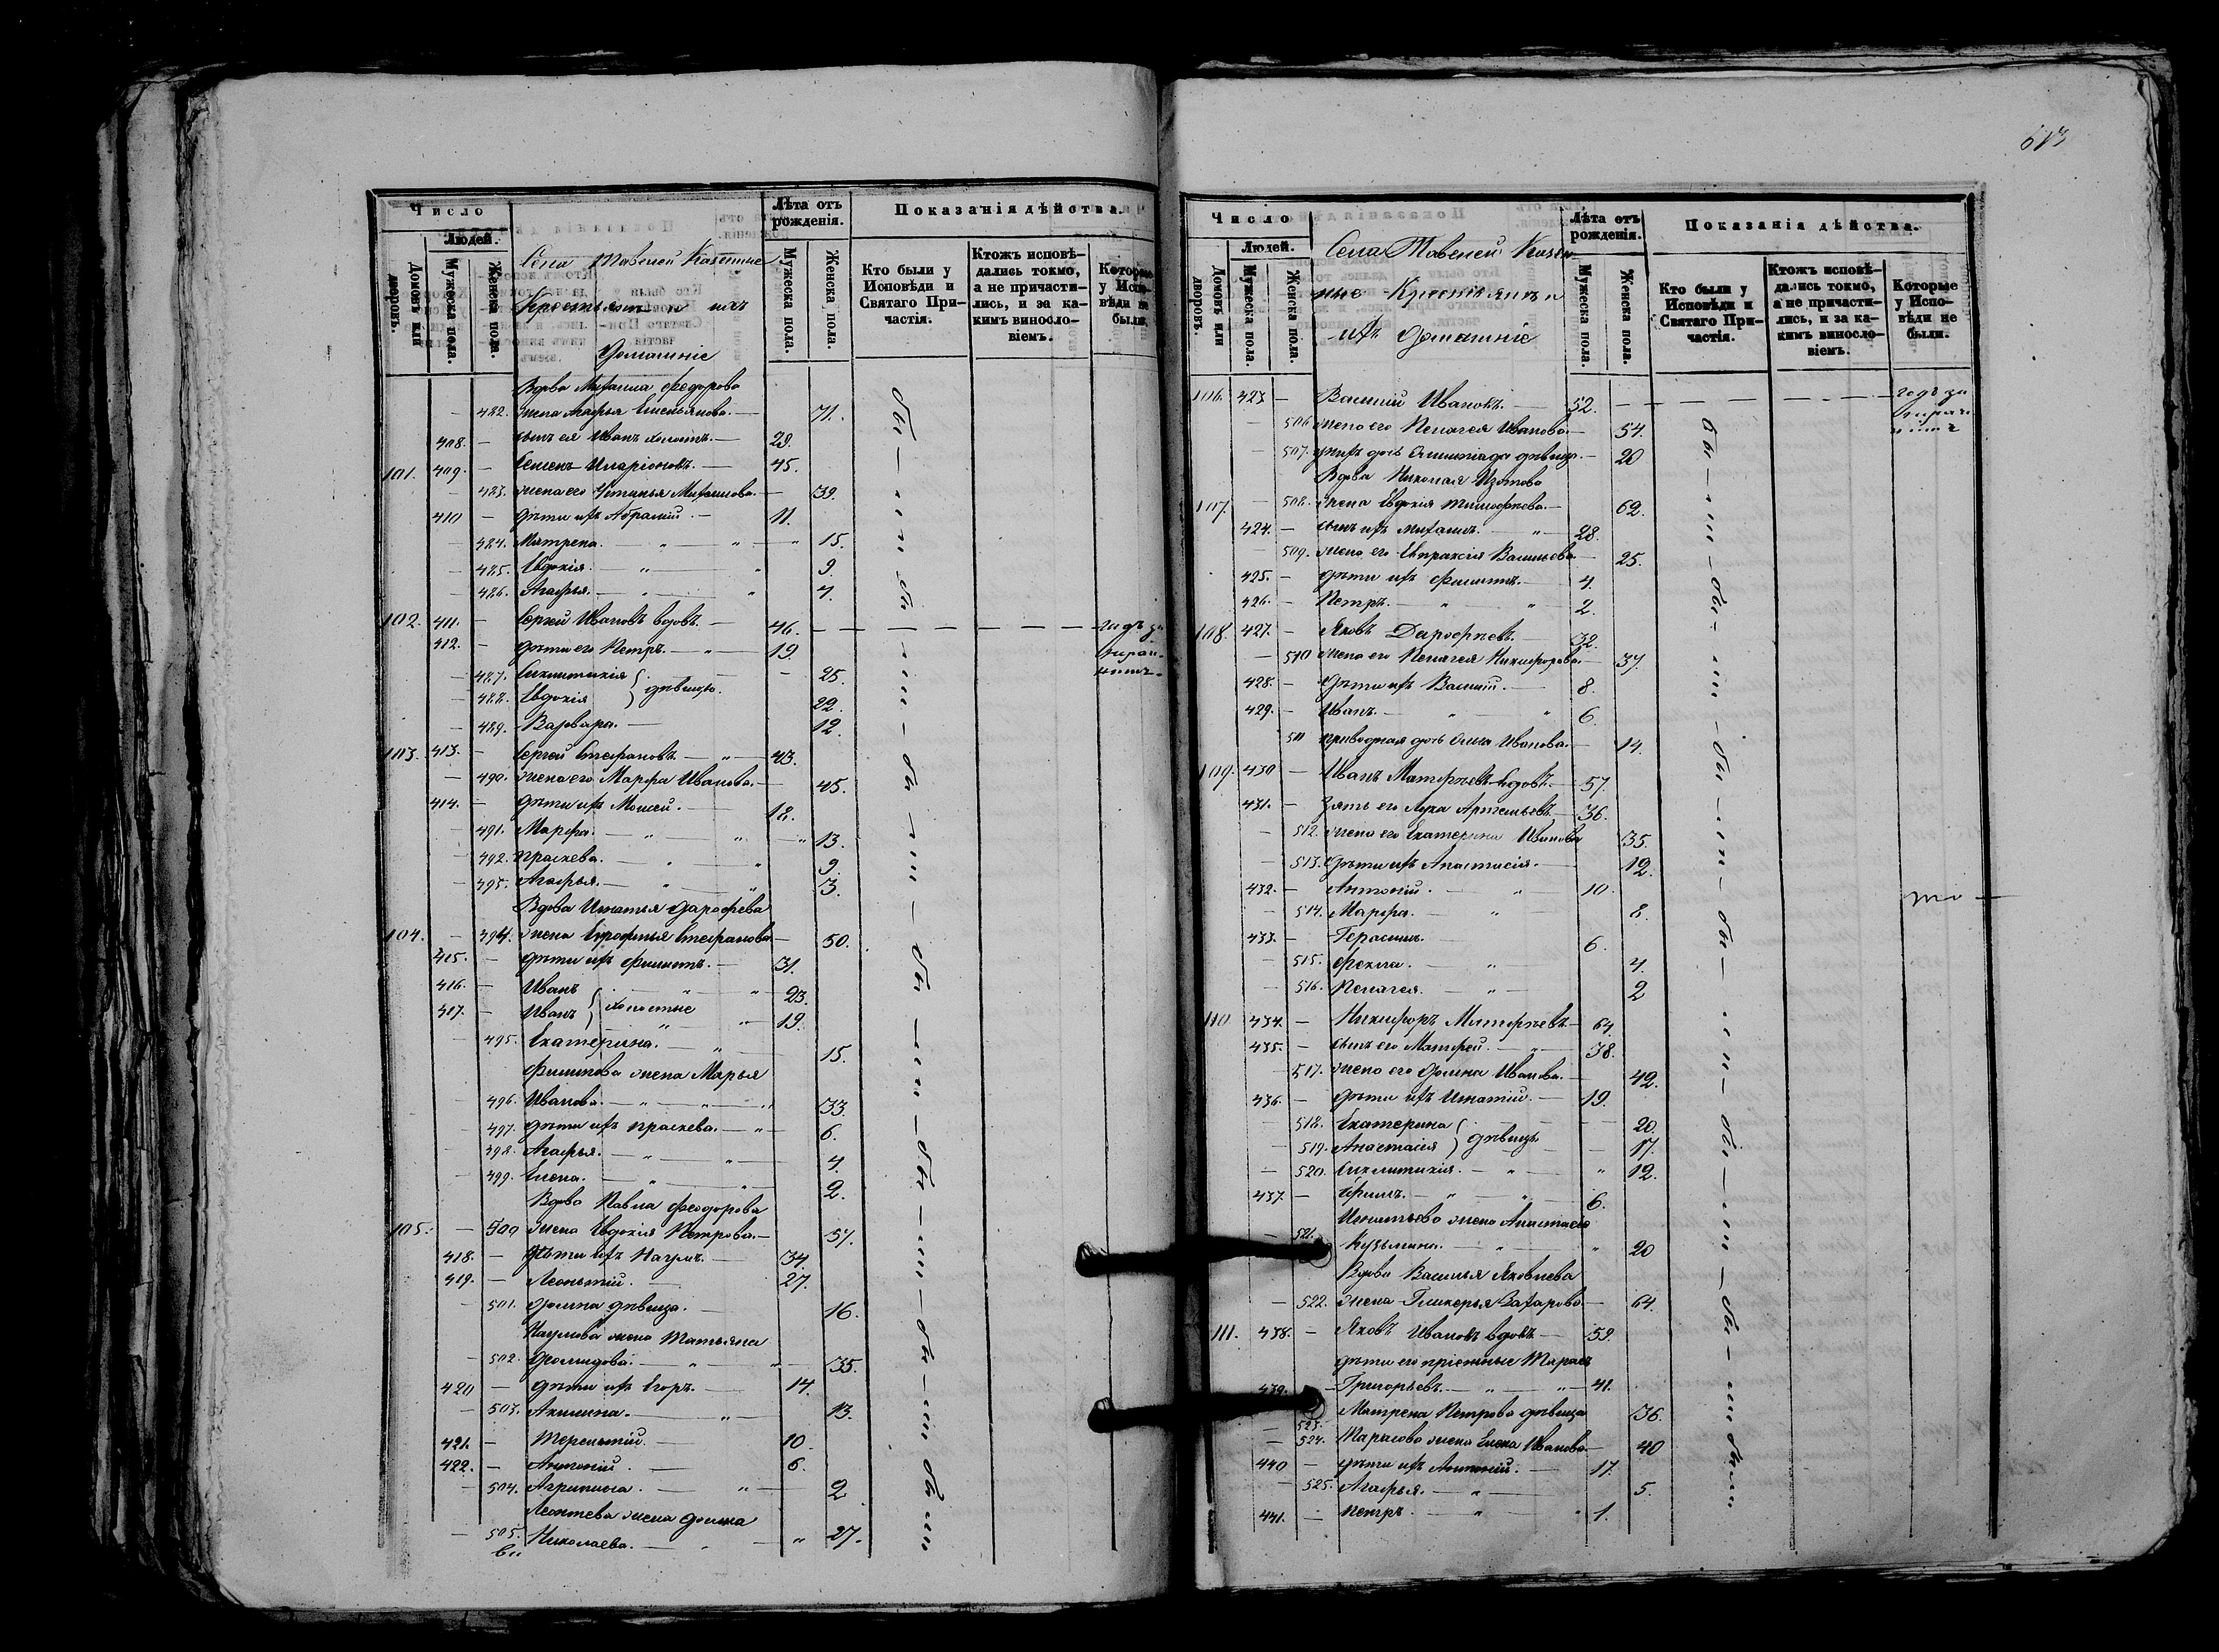 Число
Людей.
Домовъ или дворовъ.
Мужеска пола.
Женска пола.
Села Тавелей Казенные
Крестьяне и ихъ
домашніе
Лѣта отъ рожденія.
Мужеска пола.
Женска пола.
Показанія дѣйства.
Кто были у Исповѣди и Святаго Причастія.
Ктожъ исповѣдались токмо, а не причастились, и за какимъ винословіемъ.
Которые у Исповѣди не были.
Вдова Михаила Федорова
482. жена Агафья Емельянова. 71.
408. сынъ ея Иванъ холостъ. 29.
101. 409. Семенъ Иларіоновъ. 45.
483. жена его Устинья Михайлова. 39.
410 дѣти ихъ Абрамій. 11.
484. Матрена. 15.
485. Евдокія. 9.
486. Агафья. 4.
102. 411. Сергей Ивановъ вдовъ. 46.
412. дѣти его Петръ. 19.
487. Сиклитикія 25.
488. Евдокія } дѣвицы. 22.
489. Варвара. 12.
103. 413. Сергей Стефановъ 43.
490. жена его Марфа Иванова. 45.
414. дѣти ихъ Моисей. 18.
491. Марфа. 13.
492. Праскева. 9.
493. Агафья. 3.
Вдова Игнатья Дарофеева
104. 494. жена Ефросинья Стефанова 50.
415. дѣти ихъ Филиппъ. 31.
416. Иванъ 23.
417. Иванъ } холостые 19.
495. Екатерина. 15.
Филиппова жена Марья
496. Иванова. 33.
497. дѣти ихъ Праскева. 6.
498. Агафья. 4.
499. Елена. 2.
Вдова Павла Феодорова
105. 500 жена Евдокія Петрова. 57.
418. дѣти ихъ Наумъ. 34.
419. Леонтій. 27.
501. Домна дѣвица. 16.
Наумова жена Татьяна
502. 35.
420 дѣти ихъ Егоръ. 14.
503. Акилина. 13.
421. Терентій. 10.
422. Антоній. 6.
504. Агрипина. 2
Леонтева жена Домна
505. Николаева. 27.
Число
Людей.
Домовъ или дворовъ.
Мужеска пола.
Женска пола.
Села Тавелей Казен
ные Крестьянъ и
ихъ домашніе
Лѣта отъ рожденія.
Мужеска пола.
Женска пола.
Показанія дѣйства.
Кто были у Исповѣди и Святаго Причастія.
Ктожъ исповѣдались токмо, а не причастились, и за какимъ винословіемъ.
Которые у Исповѣди не были.
106. 423 Василій Ивановъ. 52.
506 жена его Пелагея Иванова. 54.
507. дочь Олимпіада дѣвица. 20
Вдова Николая Изотова
107. 508. жена Евдокія Тимофеева. 62.
424. сынъ ихъ Михаилъ. 28.
509. жена его Евпраксія Васильева 25.
425. дѣти ихъ Филиппъ. 4.
426. Петръ. 2.
108. 427. Яковъ Дарофеевъ. 32.
510 жена его Пелагея Никифорова. 37.
428. дѣти ихъ Василій. 8.
429. Иванъ. 6.
511 приводная дочь Ольга Иванова. 14.
109. 430 Иванъ Матфеевъ вдовъ. 57.
431. зять его Лука Артемьевъ. 36.
512. жена его Екатерина Иванова 35.
513. дѣти ихъ Анастасія. 12.
432. Антоній. 10.
514. Марфа. 8.
433. Герасимъ. 6.
515. Фекла. 4.
516. Пелагея. 2
110 434. Никифоръ Матфеевъ 64.
435. сынъ его Матфей. 38.
517. жена его Домна Иванова. 42.
436. дѣти ихъ Игнатій. 19.
518. Екатерина 20.
519. Анастасія } дѣвицы. 17.
520. Сиклитикія. 12.
437. Ефимъ. 6.
Игнатьева жена Анастасія
521. Кузьмина. 20
Вдова Василья Яковлева
522. жена Гликерья Захарова 64.
111. 438. Яковъ Ивановъ вдовъ 59.
дѣти его пріемные Тарасъ
439. Григорьевъ. 41.
523. Матрена Петрова дѣвица 36.
524. Тарасова жена Елена Иванова 40
440 дѣти ихъ Антоній. 17.
525. Агафья. 5.
441. Петръ. 1.